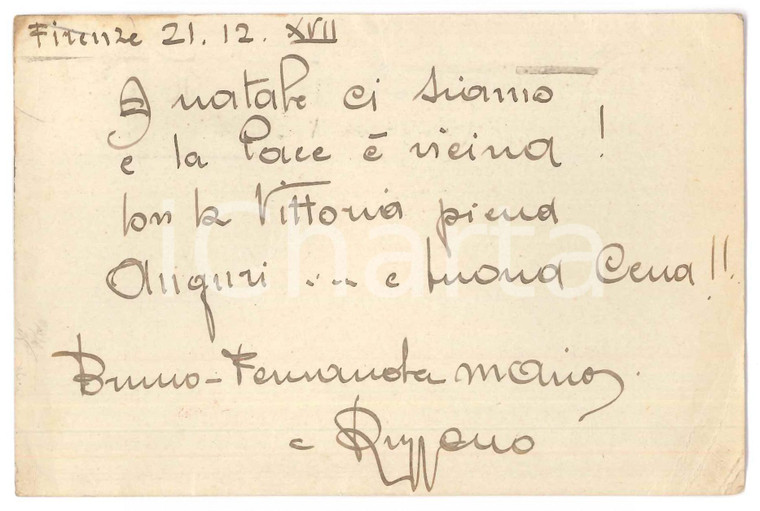 Firenze 21. 12. XVII
A natale ci siamo
e la Pace è vicina!
con la Vittoria piena
Auguri ... e buona Cena!!
Bruno - Fernanda Mario
e
iCharta